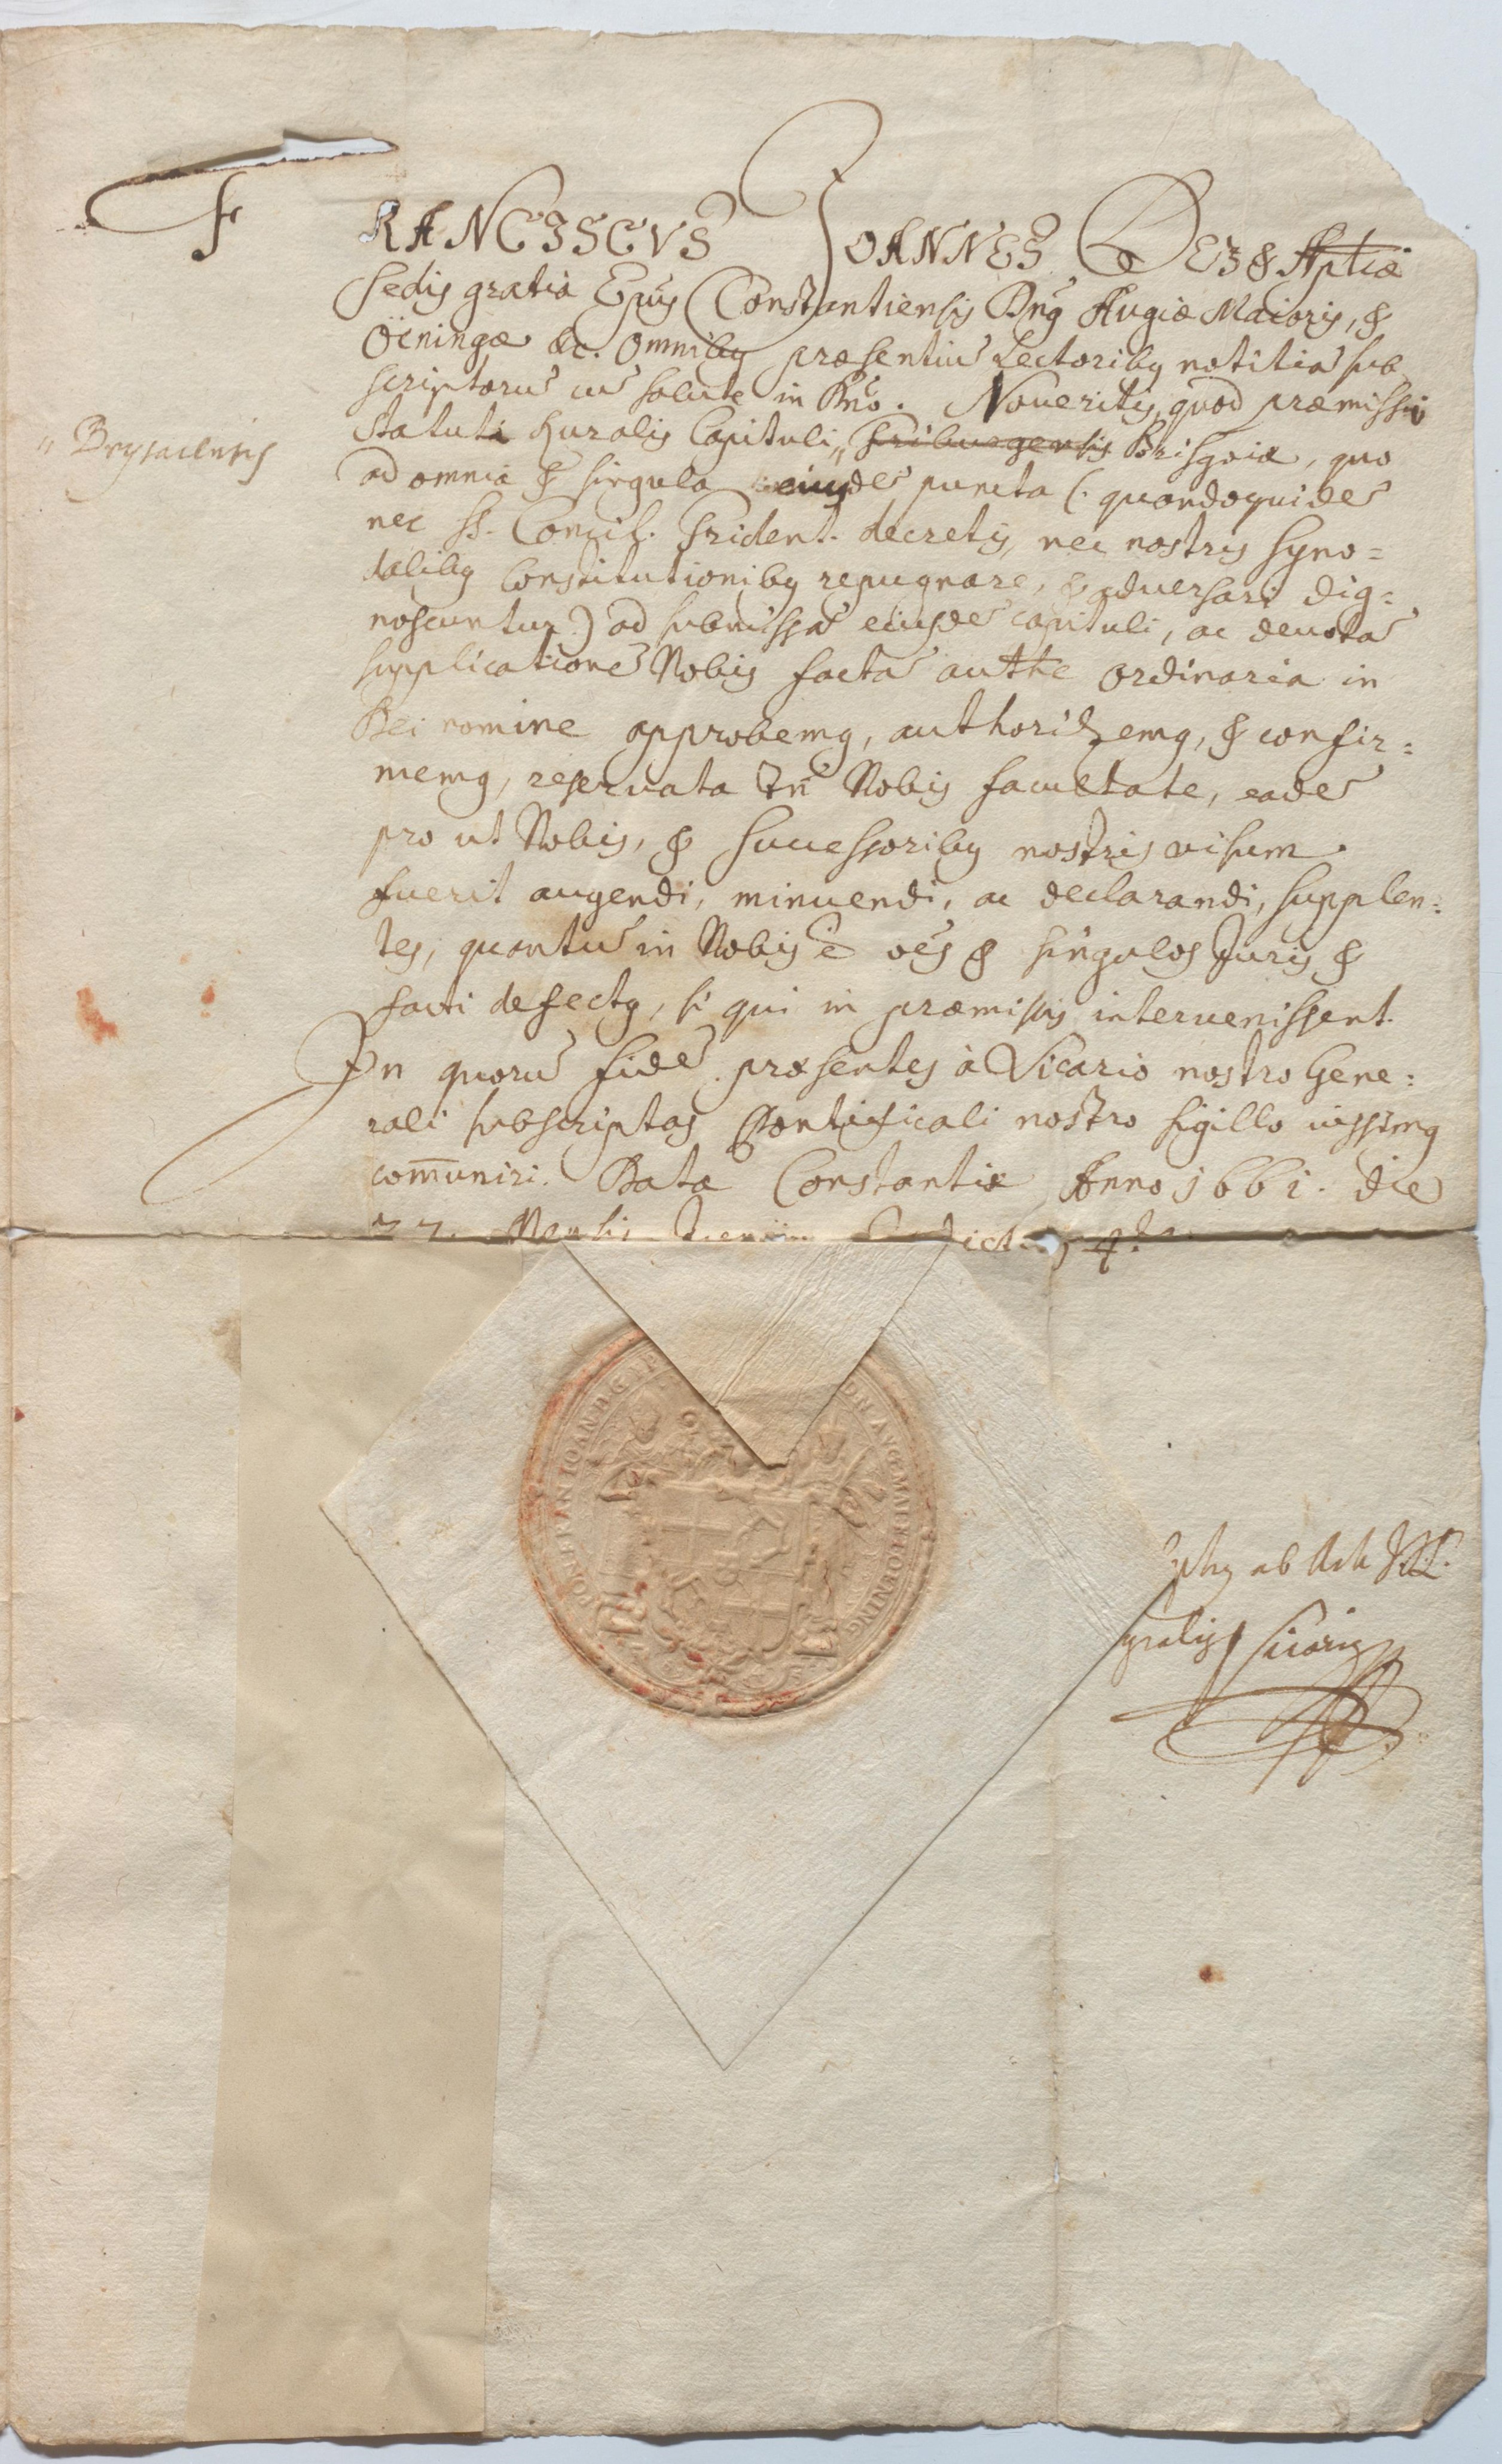 FRANCISCVS IOANNES DEI & Aptcæ
Sedis gratia Epus Constantiensis Dnus Augiæ Maioris, &
Öeningæ &c. Omnibus præsentiu Lectoribus notitia sub
scriptoru cu salute in Dno. Noueritis, quod præmissa
Statuta Ruralis Capituli, „ Friburgensis Brisgoiæ, quo
„ Brysacensis
ad omnia & singula eiusde puncta (: quandoquide
nec SS. Concil. Trident. decretis, nec nostris Syno=
dalibus Constitutionibus repugnare, & aduersari dig=
noscuntur:) ad submissa eiusde capituli, ac deuota
supplicatione Nobis facta authe ordinaria in
Dei nomine approbemus, authorizemus, & confir=
memus, reseruata tn Nobis facultate, eade
pro ut Nobis, & Successoribus nostris uisum
fuerit augendi, minuendi, ac declarandi, supplen=
tes, quantu in Nobis e oes & singulos Juris &
facti defectus, si qui in præmissis interuenissent.
In quoru fide præsentes à Vicario nostro Gene=
rali subscriptas Pontificali nostro sigillo iussimus
com̄uniri. Data Constantiæ Anno 1661. die
Mensis 4.
IOAN D G
AVG MAI ET OENING
ab
Vicarius